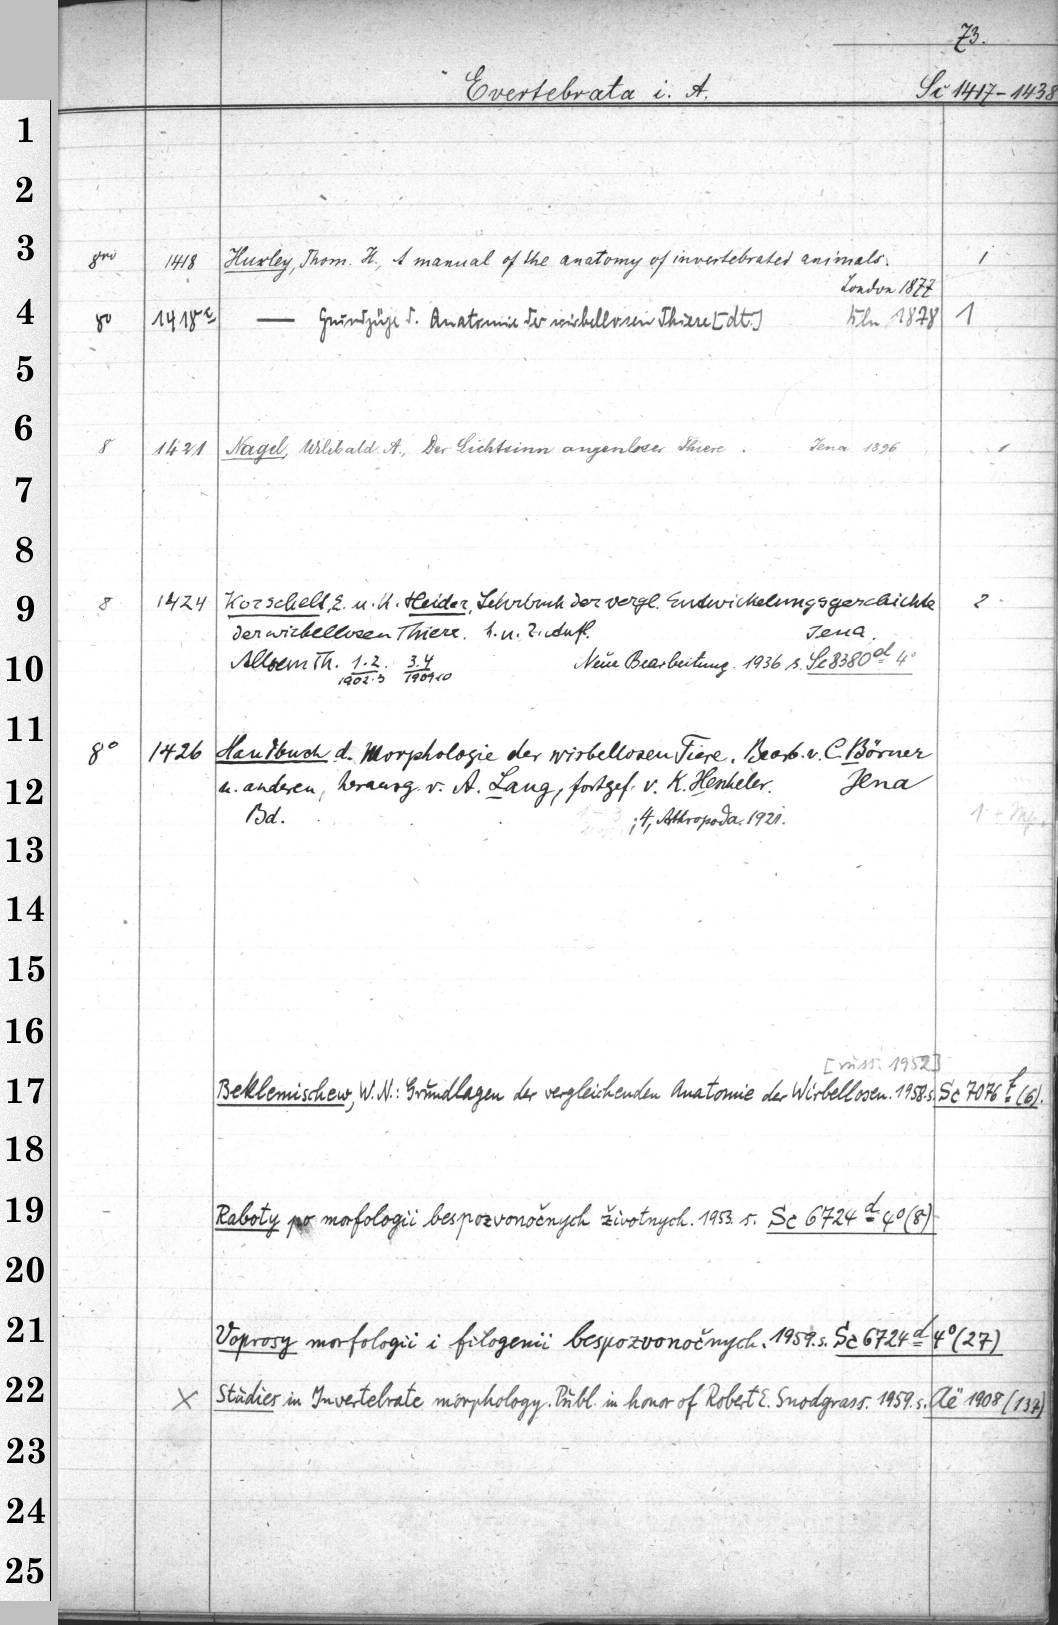 73.
Evertebrata i. A. Sc 1417-1438
1
2
3 8vo 1418 Huxley, Thom. H., A manual of the anatomy of invertebrated animals. 1
London 1877
4 8o 1418a — Grundzüge d. Anatomie der wirbellosen Thiere [dt.] 1878 1
5
6 8 1421 Nagel, Wilibald A., Der Lichtsinn augenloser Thiere. Jena 1896 1
7
8
9 8 1424 Korschelt, E. u. K. Heider, Lehrbuch der vergl. Entwickelungsgeschichte 2
der wirbellosen Thiere. 1. u. 2. Aufl. Jena.
10 Allgem Th. 1.2. 3.4 Neue Bearbeitung. 1936 s. Sc 8380d 4o
1902.3 1909.10
11 8o 1426 Handbuch d. Morphologie der wirbellosen Tiere. Bearb. v. C. Börner
12 u. anderen, herausg. v. A. Lang, fortgef. v. K. Hescheler. Jena
Bd. ; 4, Arthropoda. 1921.
13
14
15
16
[russ. 1952]
17 Beklemischew, W. N.: Grundlagen der vergleichenden Anatomie der Wirbellosen. 1958. s. Sc 7076 f (6).
18
19 Raboty po morfologii bespozvonočnych životnych. 1953. s. Sc 6724 d 4o (8)
20
21 Voprosy morfologii i filogenii bespozvonočnych. 1959. s. Sc 6724 d 4o (27)
22 × Studies in Invertebrate morphology. Publ. in honor of Robert E. Snodgrass. 1959. s. Aë 1908 (137)
23
24
25